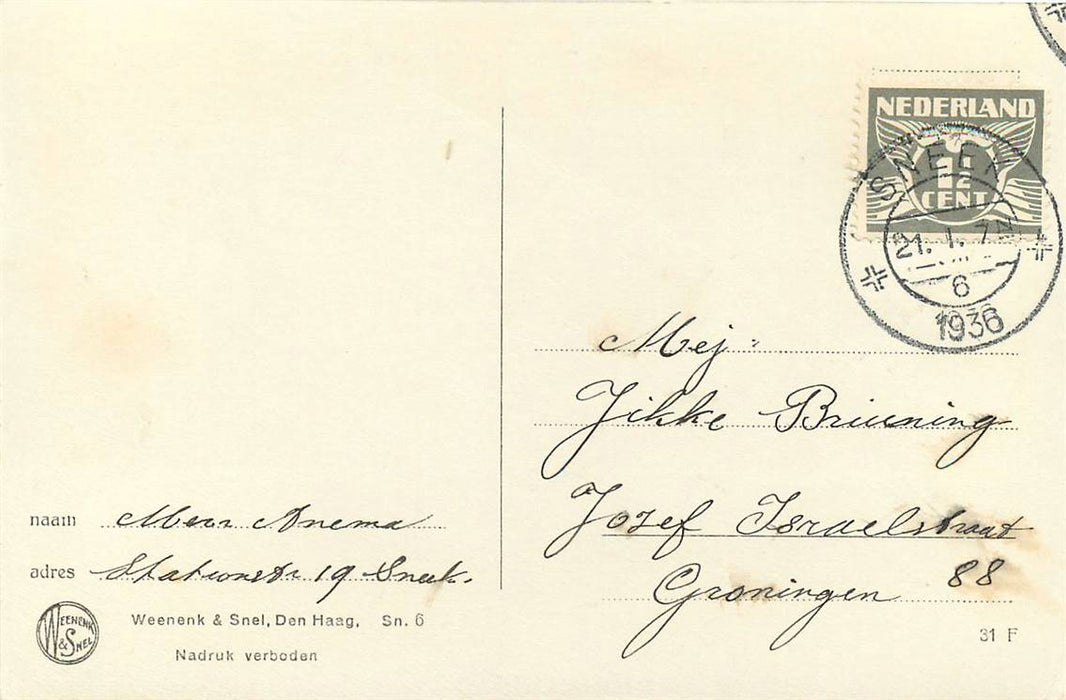 NEDERLAND
1½
CENT
SNEEK
21. 1. 7 N
6
1936
Mej:
Jikke Bruening
Jozef Israelstraat
88
Groningen
naam Meor Anema
adres Stationstr 19 Sneek.
WEENENK
& SNEL
Weenenk & Snel, Den Haag, Sn. 6
Nadruk verboden
31 F